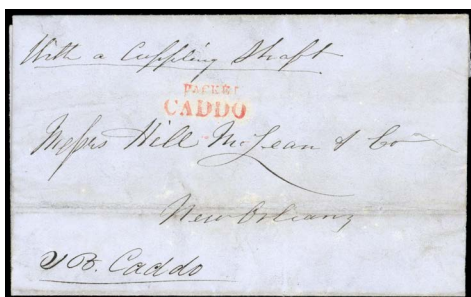 With a Cuppling Shaft
PACKET
CADDO
Messrs Hill McLean & Co
New Orleans
S B. Caddo